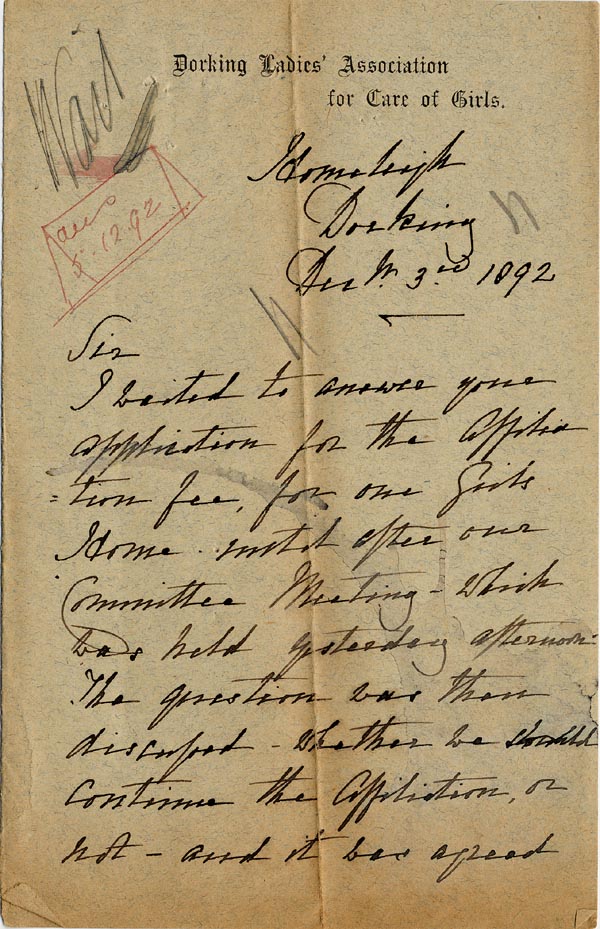 Dorking Ladies' Association
for Care of Girls.
Wait
5.12.92
Homeleigh
Dorking
Decbr. 3rd 1892
Sir
I waited to answer your
application for the Affilia
=tion fee, for our Girls
Home until after our
Committee Meeting - which
was held yesterday afternoon.
The question was then
discussed - whether we should
continue the Affiliation, or
not - and it was agreed